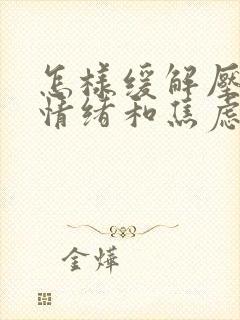 怎樣緩解壓
情绪和焦慮
金燁